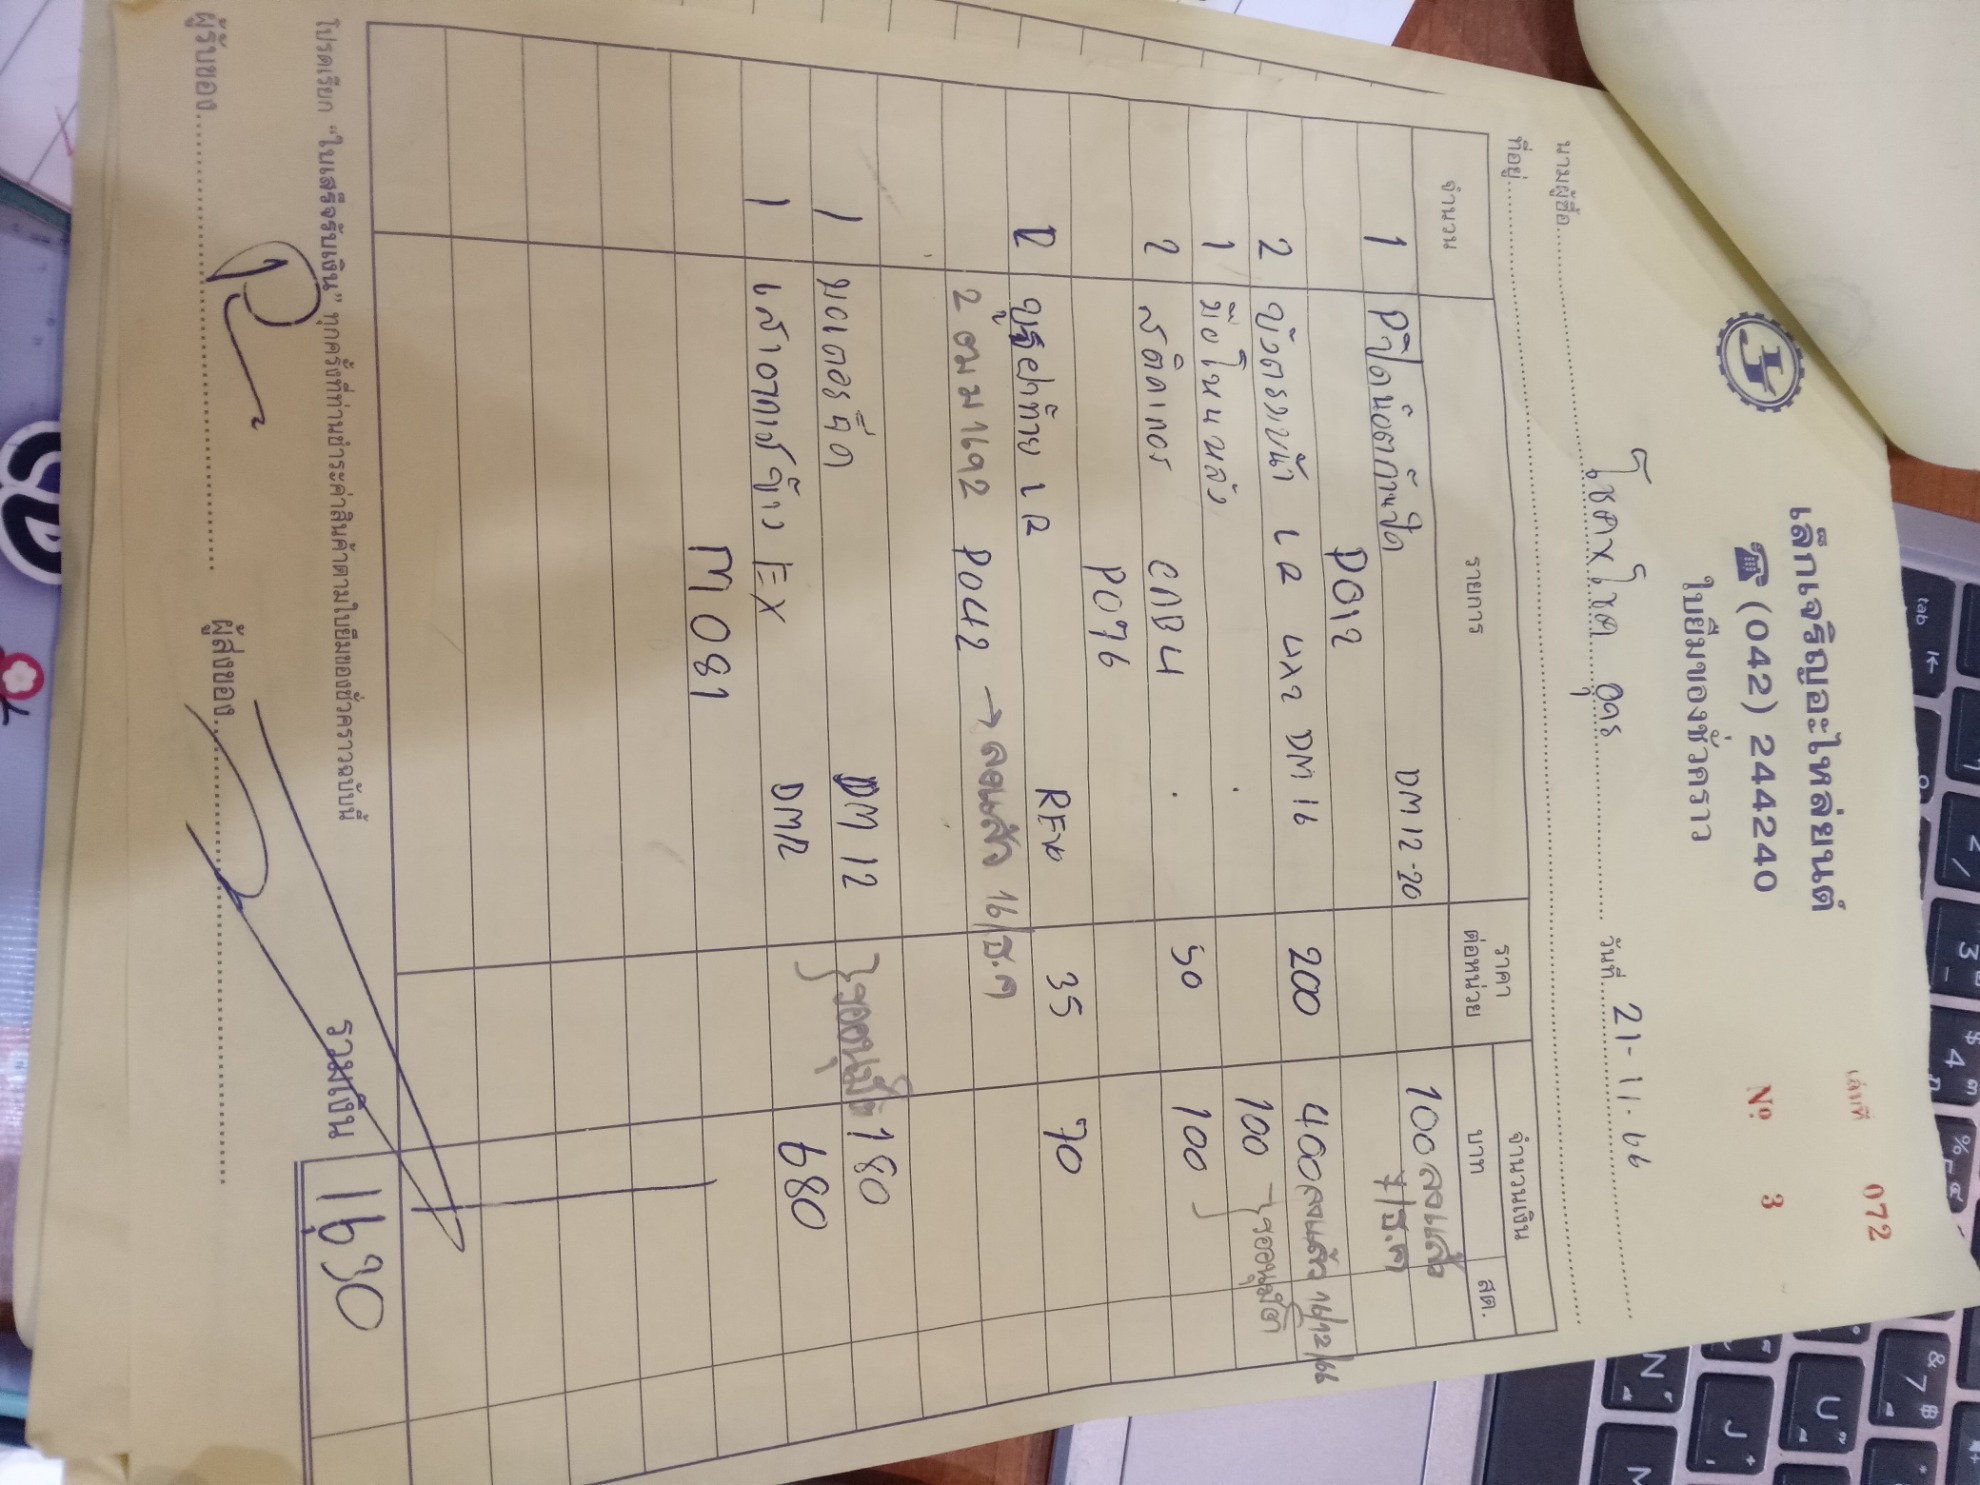 เลขที่ 072
เล็กเจริญอะไหล่ยนต์
☎ (042) 244240
Nº 3
ใบยืมของชั่วคราว
นามผู้ซื้อ โชคชโชค อุดร วันที่ 21-11-66
ที่อยู่
จำนวน รายการ ราคาต่อหน่วย จำนวนเงิน
บาท สต.
1 DM 12-20 100 ลงแล้ว
P012 ธ.ค
2 LR 4x2 DM 16 200 400 ลงแล้ว 16/12/66
1 มือโหนหลัง 100 รออนุมัติ
2 สติกเกอร์ CAB4 50 100
P076
LR REvo 35 70
P042 → ลงแล้ว 16/ธ.ค
1 มอเตอร์ฉีด DM 12 รออนุมัติ 180
1 เสาอากาศ EX DM12 680
M081
รวมเงิน 1630
โปรดเรียก "ใบเสร็จรับเงิน" ทุกครั้งที่ท่านชำระค่าสินค้าตามใบยืมของชั่วคราวฉบับนี้
ผู้รับของ ผู้ส่งของ